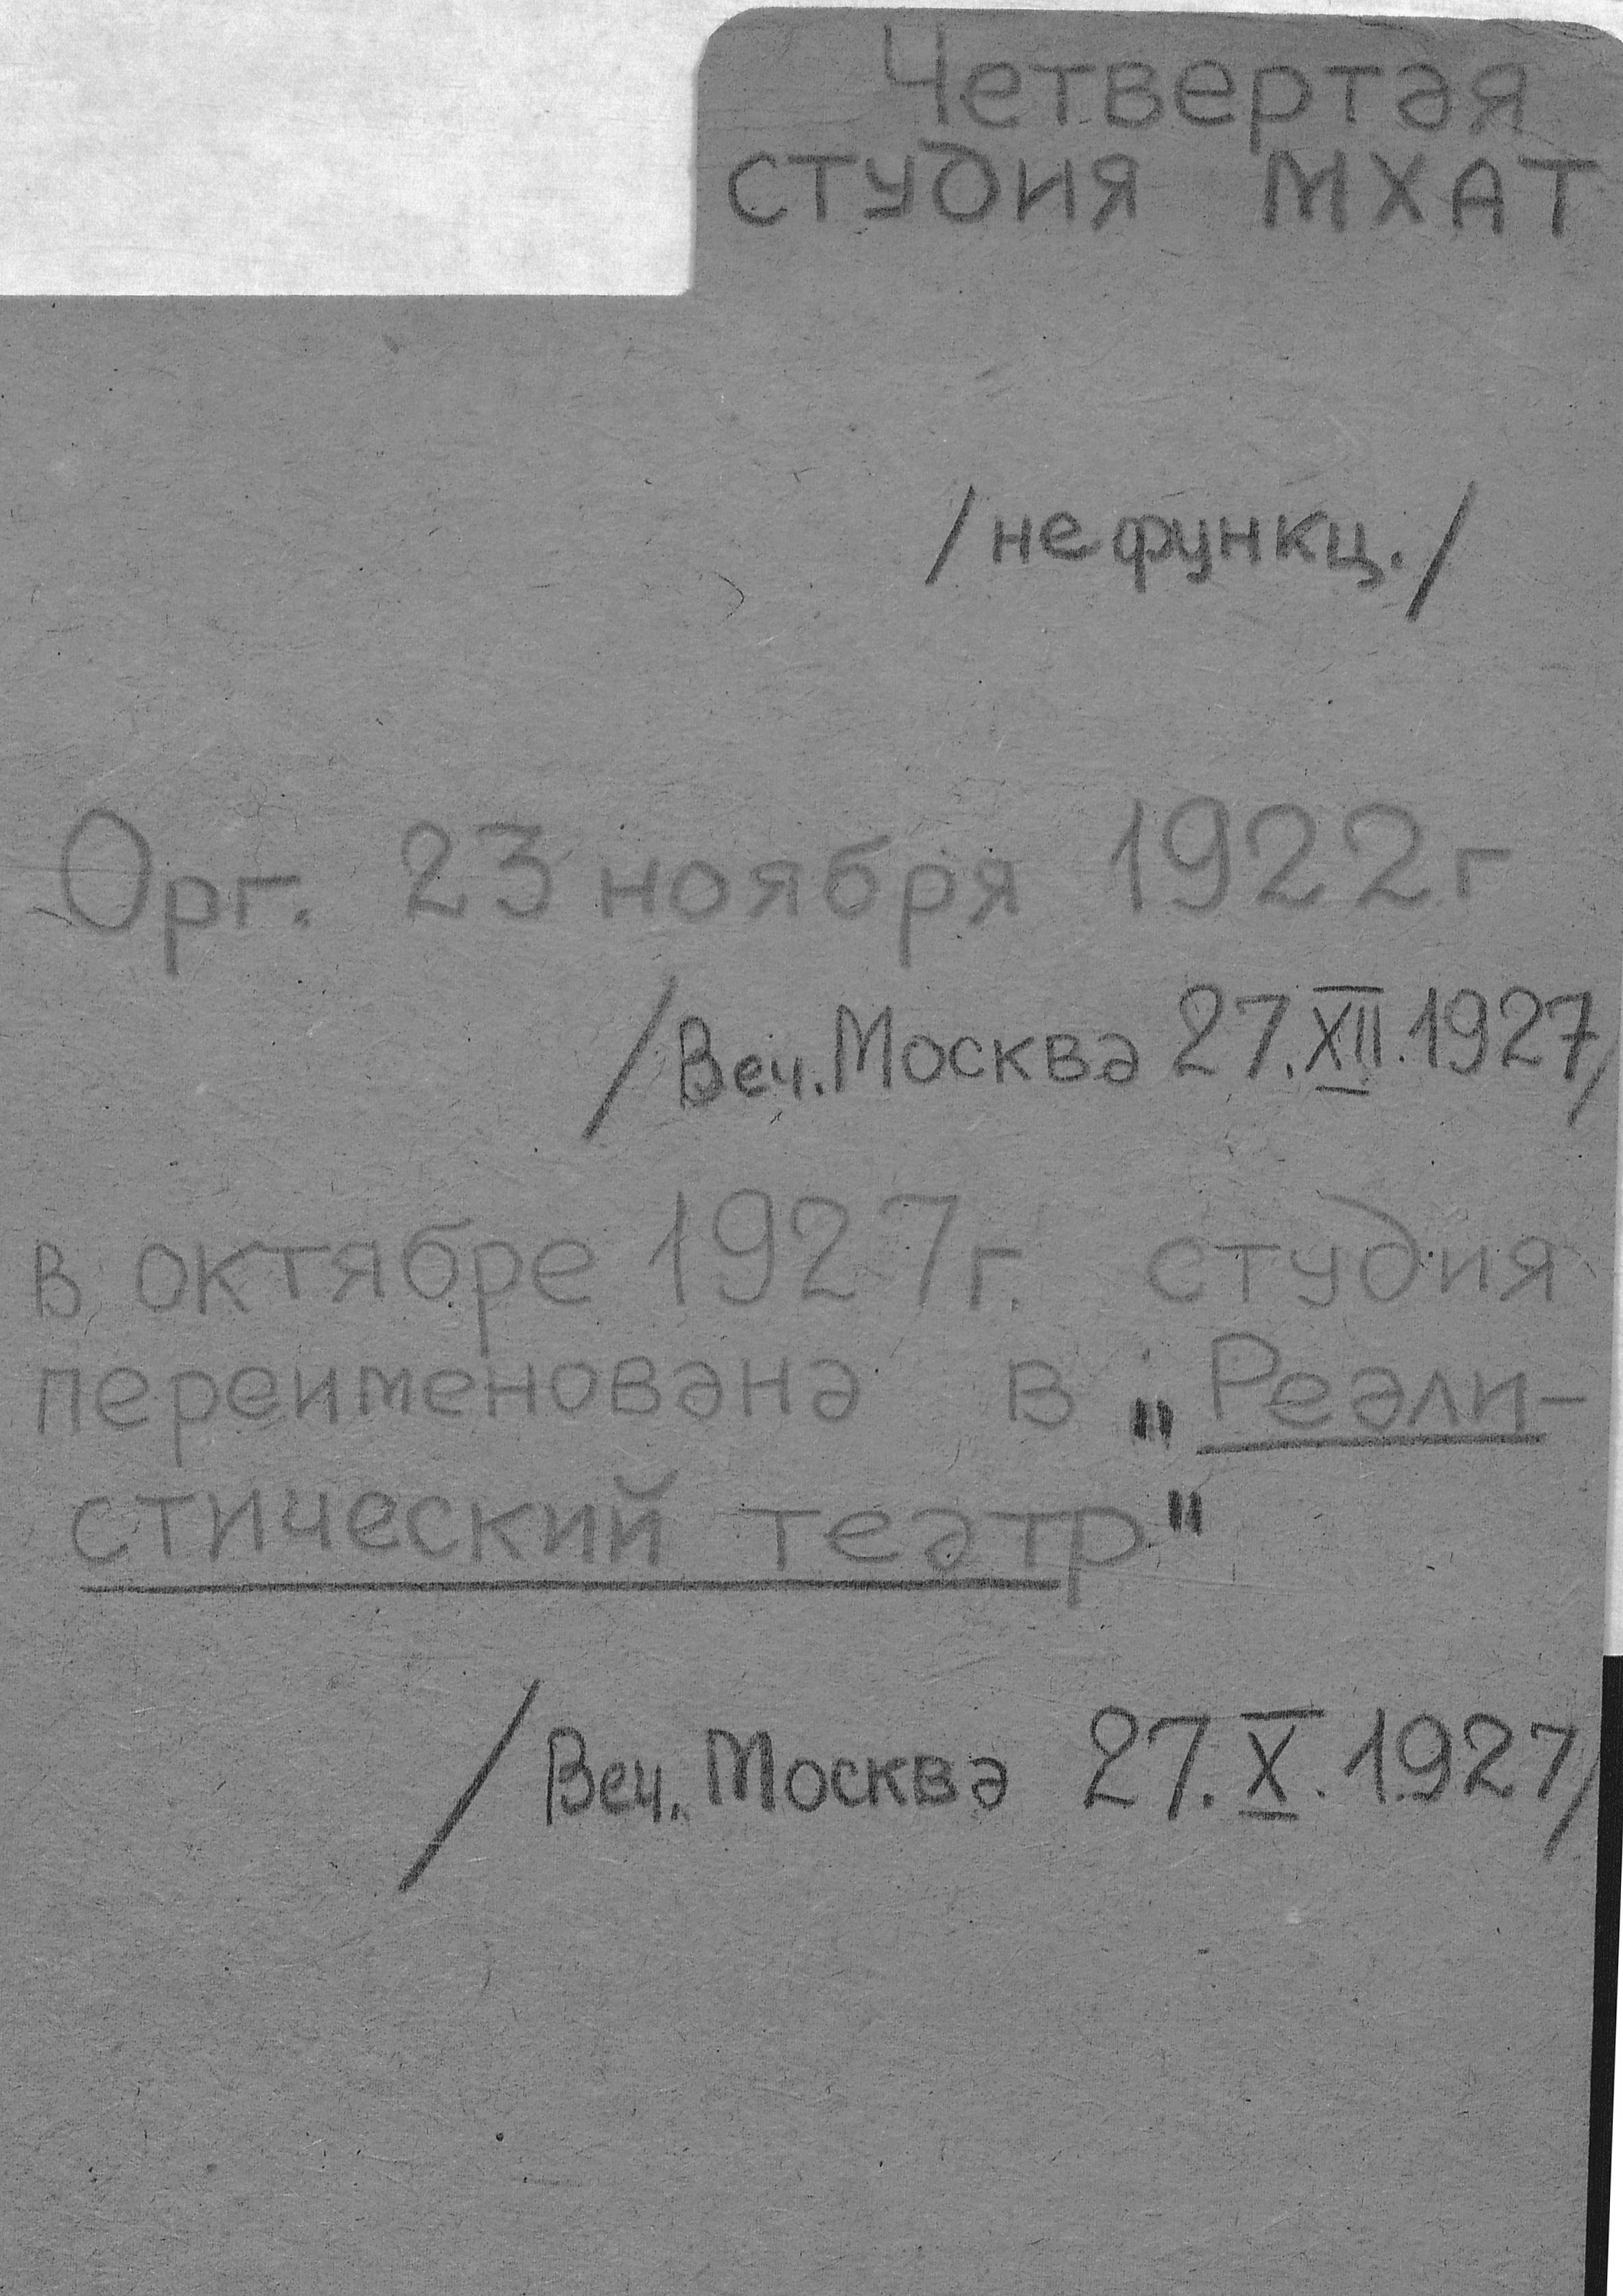 Четвертая
студия МХАТ
/не функц./
Орг. 23 ноября 1922г
/Веч. Москва 27.XII.1927/
в октябре 1927г. студия
переименована в „Реали-
стический театр"
/Веч. Москва 27.X.1927/